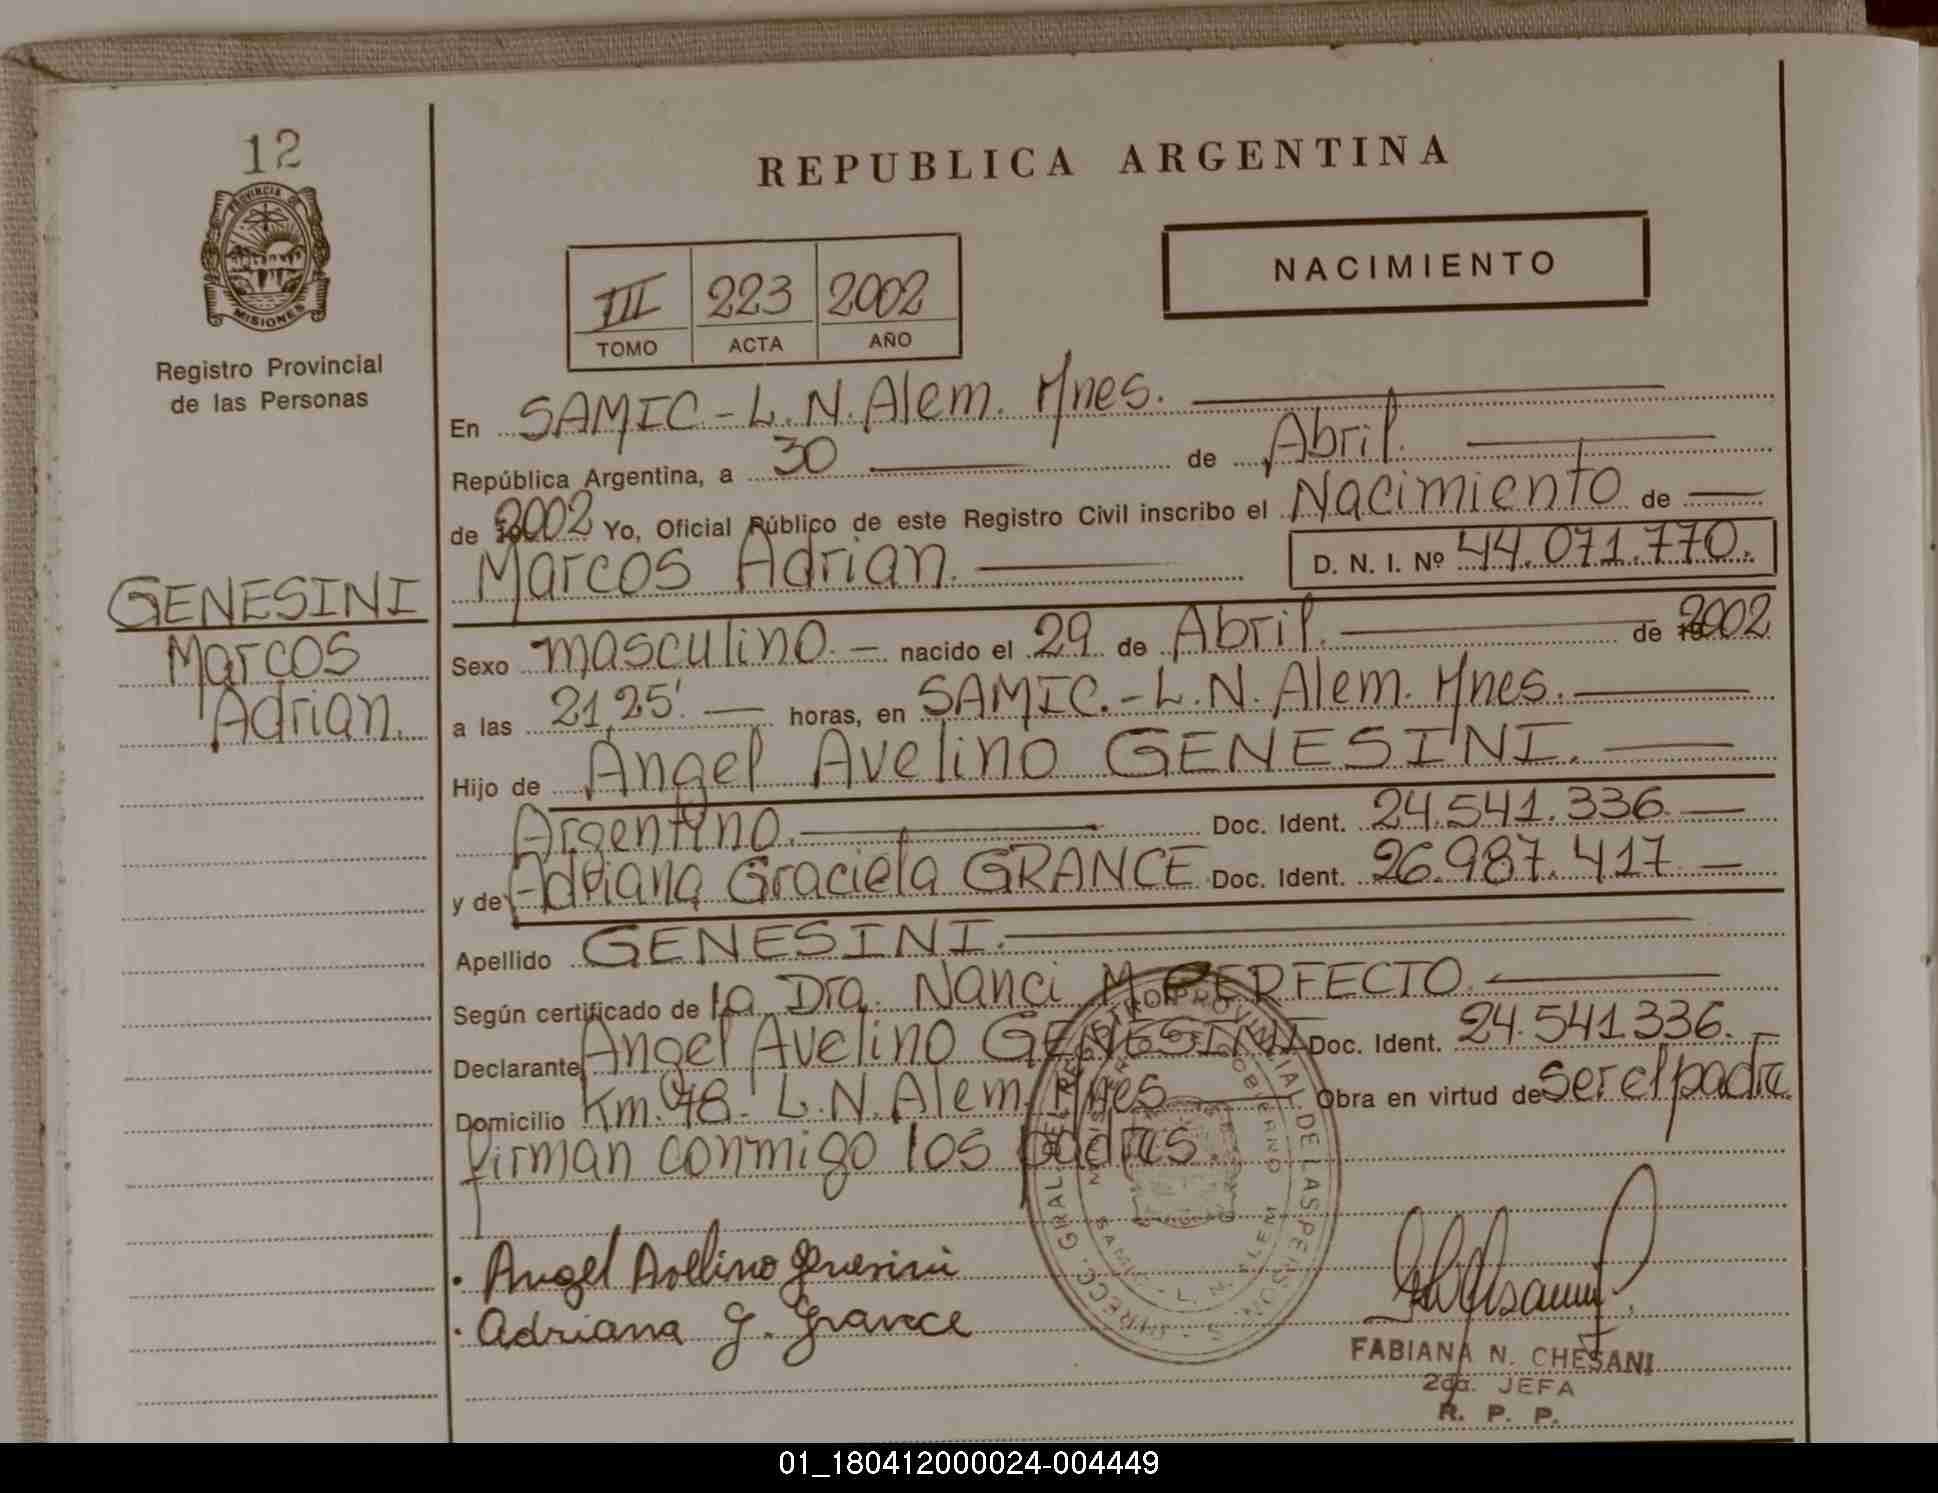 12
PROVINCIA DE
MISIONES
Registro Provincial
de las Personas
GENESINI
Marcos
Adrian.
REPUBLICA ARGENTINA
NACIMIENTO
III 223 2002
TOMO ACTA AÑO
En SAMIC.-L.N.Alem. Mnes.
República Argentina, a 30 de Abril.
de 2002 Yo, Oficial Público de este Registro Civil inscribo el Nacimiento de
Marcos Adrian. D. N. I. Nº 44.071.770.
Sexo masculino.- nacido el 29 de Abril. de 2002
a las 21,25'. horas, en SAMIC.-L.N. Alem. Mnes.
Hijo de Angel Avelino GENESINI.
Argentino. Doc. Ident. 24.541.336.
y de Adriana Graciela GRANCE Doc. Ident. 26.987.417
Apellido GENESINI.
Según certificado de la Dra. Nanci M. PERFECTO.
Declarante Angel Avelino GENESINI Doc. Ident. 24.541.336.
Domicilio Km.48. L.N.Alem. Mnes Obra en virtud de ser el padre
firman conmigo los padres.
Angel Avelino Genesini
Adriana G. Grance
FABIANA N. CHESANI
2da. JEFA
R. P. P.
01_180412000024-004449